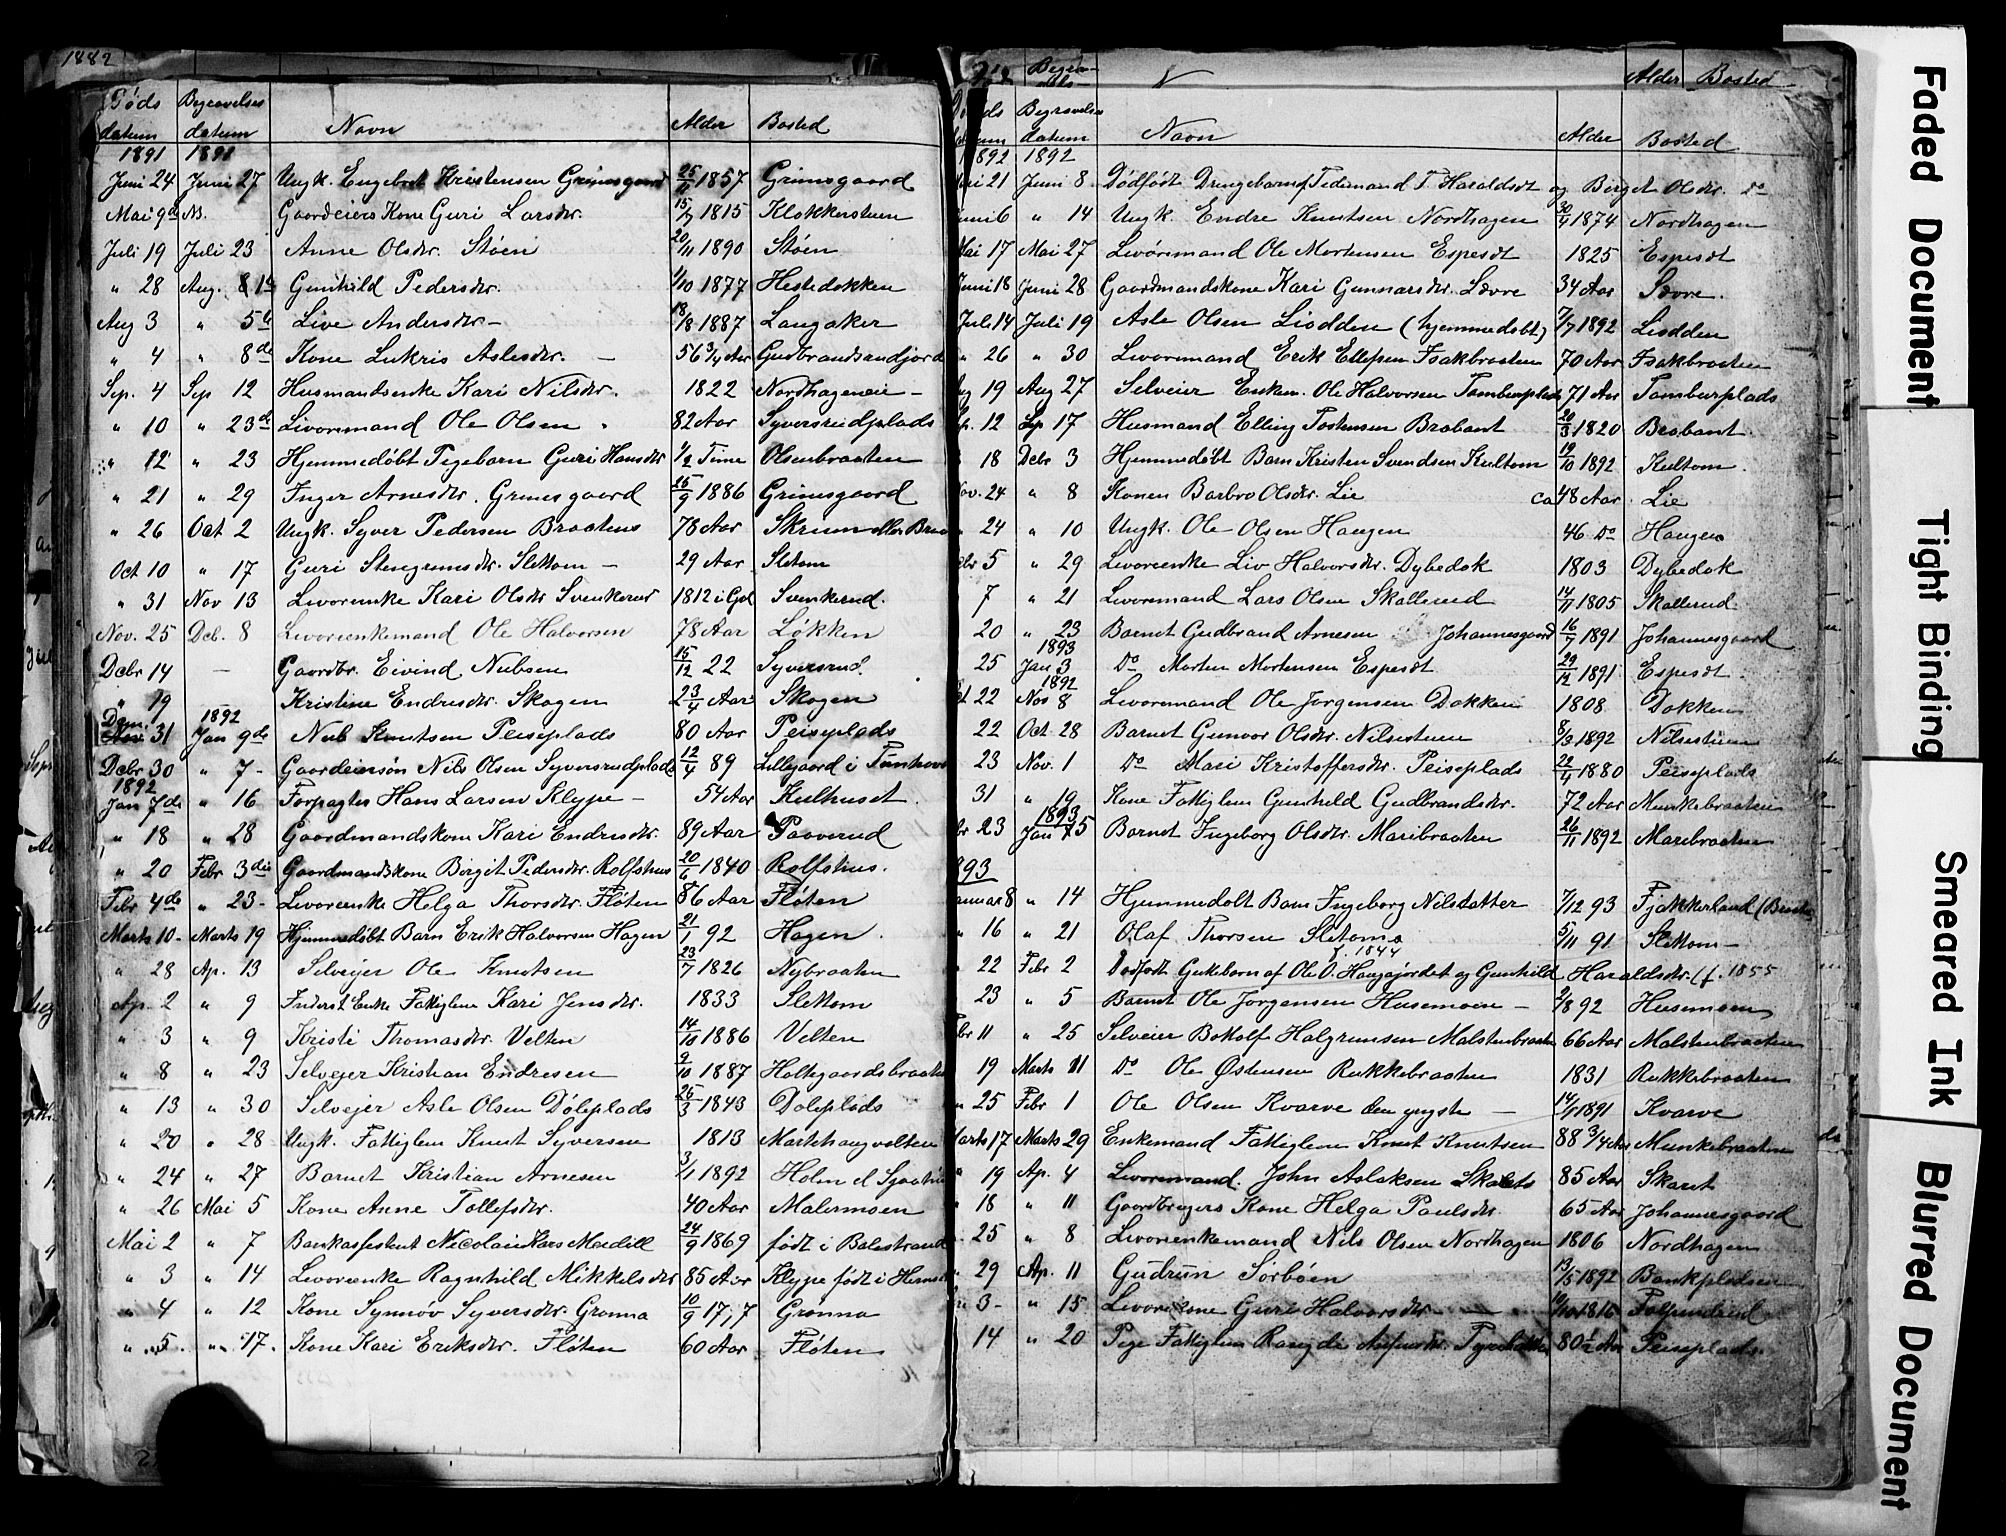 1882
Døds Begravelses
datum datum Navn Alder Bosted
1891 1891
Juni 24 Juni 27 Ungk. Engebret Kristensen Grimsgaard 25/6 1857 Grimsgaard
Mai 9de Gaardeiers Kone Guri Larsdr. 15/7 1815 Klokkerstuen
Juli 19 Juli 23 Anne Olsdr. Støen 20/11 1890 Støen
" 28 Aug. Gunhild Pedersdr. 1/10 1877 Hestedokken
Aug 3 " 5te Live Andersdr. 18/8 1887 Langaker
" 4 " 8de Kone Lukris Aslesdr. — 56 3/4 Aar Gudbrandsrudjord
Sep. 4 Sep 12 Husmandsenke Kari Nilsdr. 1822 Nordhageneie
" 10 " 23de Livøremand Ole Olsen 82 Aar Syversrudplads
" 12 " 23 Hjemmedøbt Pigebarn Guri Hansdr 1/2 Time Olsenbraaten
" 21 " 29 Inger Arnesdr. Grimsgaard 25/9 1886 Grimsgaard
" 26 Oct 2 Ungk. Syver Pedersen Braatens 78 Aar Skrim eller
Oct 10 " 17 Guri Stengrimsdr. Slettom — 29 Aar Sletom
" 31 Nov 13 Livørenke Kari Olsdr Svenkerud 1812 i Gol Svenkerud.
Nov. 25 Dcb. 8 Livørenkemand Ole Halvorsen 78 Aar Løkken
Dcbr 14 — Gaardbr. Eivind Nubsen 15/12 22 Syversrud.
" 19 Kristine Endresdr. Skogen 23/4 Aar Skogen
Dcm. 31 1892 Jan 9de Nub Knutsen Peiseplads 80 Aar Peiseplads
Dcbr 30 " 7 - Gaardeiersøn Nils Olsen Syversrudplads 12/4 89 Lillegaard i Tunhovd
1892
Jan 7de " 16 Forpagter Hans Larsen Klype — 54 Aar Kulhuset
" 18 " 28 Gaardmandskone Kari Endresdr. 89 Aar Paaverud
" 20 Febr 3die Gaardmandskone Birgit Pedersdr. Rolfshus 20/6 1840 Rolfshus.
Febr 4de " 23 - Livørenke Helga Thorsdr. Fløten 86 Aar Fløten
Marts 10 - Marts 19 Hjemmedøbt Barn Erik Halvorsen Hagen 21/1 92 Hagen
" 28 Ap. 13 Selveier Ole Knutsen 23/7 1826 Nybraaten
Ap. 2 " 9 Inderst Enke Fattiglem Kari Jensdr. 1833 Slettom
" 3 " 9 Kristi Thomasdr. Velten 14/10 1886 Velten
" 8 " 23 Selvejer Kristian Endresen 9/10 1887 Holtegaardsbraaten
" 13 " 30 Selvejer Asle Olsen Døleplads 25/3 1843 Døleplads
" 20 " 28 Ungk. Fattiglem Knut Syversen 1813 Markhaugvelten
" 24 " 27 Barnet Kristian Arnesen 3/1 1892 Holm
" 26 Mai 5 Kone Anne Tollefsdr. 40 Aar Malermoen
Mai 2 " 7 Bankasistent Nicolai Kars Meidell 24/9 1869 født i Balestrand
" 3 " 14 Livørenke Ragnhild Mikkelsdr 85 Aar Klype født i
" 4 " 12 Kone Synnøv Syversdr. Grønna 10/9 17,7 Grønna
" 5 " 17. Kone Kari Eriksdr. Fløten 60 Aar Fløten
Begra- N Alder Bosted
Begravelses
datum Navn Alder Bosted
1892 1892
21 Juni 8 Dødfødt Drengebarn af Tidemand T. Haraldset og Birget Olsdr. Do
Juni 6 " 14 Ungk. Endre Knutsen Nordhagen 30/9 1874 Nordhagen
Mai 17 Mai 27 Livøremand Ole Mortensen Espeset 1825 Espeset
Juni 18 Juni 28 Gaardmandskone Kari Gunnarsdr. Sævre 34 Aar Sævre.
Juli 14 Juli 19 Asle Olsen Liodden (hjemmedøbt) 7/7 1892 Liodden
" 26 " 30 Livøremand Erik Ellefsen Isakbraaten 70 Aar Isakbraaten
19 Aug 27 Selveier Enkem. Ole Halvorsen Tamburplads 71 Aar Tamburplads
12 Sep 17 Husmand Elling Tostensen Brabant 20/3 1820 Brabant
18 Decbr 3 Hjemmedøbt Barn Kristen Svendsen Kultom 19/10 1892 Kultom.
Nov. 24 " 8 Konen Barbro Olsdr. Lie ca 48 Aar Lie
24 " 10 Ungk. Ole Olsen Haugen 46 Do Haugen
5 " 29 Livørenke Liv Halvorsdr. Dybedok 1803 Dybedok
7 " 21 Livøremand Lars Olsen Skallerud 14/7 1805 Skallerud.
20 " 23 Barnet Gudbrand Arnesen Johannesgaard 16/7 1891 Johannesgaard
25 1893 Jan 3 Do Morten Mortensen Espeset 29/12 1891 Espeset
22 1892 Nov 8 Livøremand Ole Jørgensen Dokken 1808 Dokken
22 Oct 28 Barnet Gunvor Olsdr. Nilsestuen 8/3 1892 Nilsestuen
23 Nov. 1 Do Mari Kristoffersdr. Peiseplads 22/4 1880 Peiseplads
31 " 19 Kone Fattiglem Gunhild Gudbrandsdr. 72 Aar Munkebraaten
23 1893 Jan 75 Barnet Ingeborg Olsdr. Maribraaten 26/11 1892 Maribraaten
893
Januar 8 " 14 Hjemmedøbt Barn Ingeborg Nilsdatter 7/12 93 Fjakkerland
" 16 " 21 Olaf Thorsen Sletom 5/11 91 Slettom —
f. 1844
22 Febr 2 Dødfødt Gutebarn af Ole O. Haugajordet og Gunhild Haraldsdr. (f. 1855
23 " 5 Barnet Ole Jørgensen Husemoen — 2/8 92 Husemoen
Febr 11 " 25 Selveier Botholf Halgrimsen Malstenbraaten 66 Aar Malstenbraaten
19 Marts 11 Do Ole Østensen Rukkebraaten 1831 Rukkebraaten
25 Febr 1 Ole Olsen Kvarve den yngste — 14/1 1891 Kvarve
Marts 17 Marts 29 Enkemand Fattiglem Knut Knutsen 88 3/4 Aar Munkebraaten
" 19 Ap. 4 Livøremand. John Aslaksen Skarets 85 Aar Skaret
18 " 11 Gaardbrugers Kone Helga Paulsdr. 65 Aar Johannesgaard
25 " 8 Livørenkemand Nils Olsen Nordhagen 1806 Nordhagen
29 Ap. 11 Gudrun Sørbøen 13/5 1892 Bankpladsen
3 - " 15 Livørekone Guri Halvorsdr. — 1816
14 " 20 Pige Fattiglem 80 1/2 Aar Peiseplads.
Faded Document
Tight Binding
Smeared Ink
Blurred Document